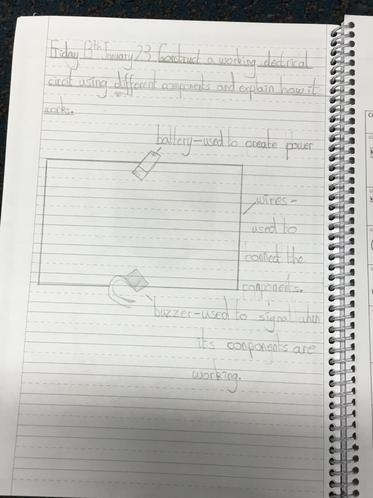 Friday 13th January 23 Construct a working electrical
circit using different components and explain how it
works.
battery-used to create power
wires-
used to
conned the
components.
buzzer-used to signal when
its components are
working.